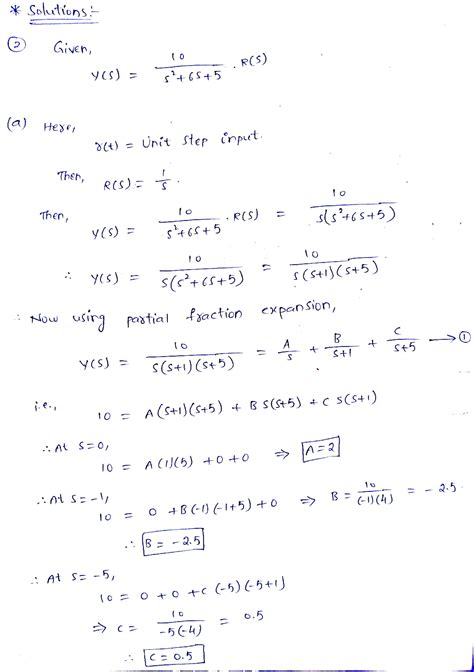 * Solutions:-
② Given,
Y(s) = 10 / s²+6s+5 . R(s)
(a) Here,
r(t) = Unit step input.
Then, R(s) = 1/s .
Then, Y(s) = 10 / s²+6s+5 . R(s) = 10 / s(s²+6s+5)
∴ Y(s) = 10 / s(s²+6s+5) = 10 / s(s+1)(s+5)
∴ Now using partial fraction expansion,
Y(s) = 10 / s(s+1)(s+5) = A/s + B/s+1 + C/s+5 → ①
i.e., 10 = A(s+1)(s+5) + B s(s+5) + C s(s+1)
∴ At s=0,
10 = A(1)(5) + 0 + 0 ⇒ A=2
∴ At s=-1,
10 = 0 + B(-1)(-1+5) + 0 ⇒ B = 10/(-1)(4) = -2.5.
∴ B = -2.5
∴ At s=-5,
10 = 0 + 0 + C(-5)(-5+1)
⇒ C = 10 / -5(-4) = 0.5
∴ C = 0.5